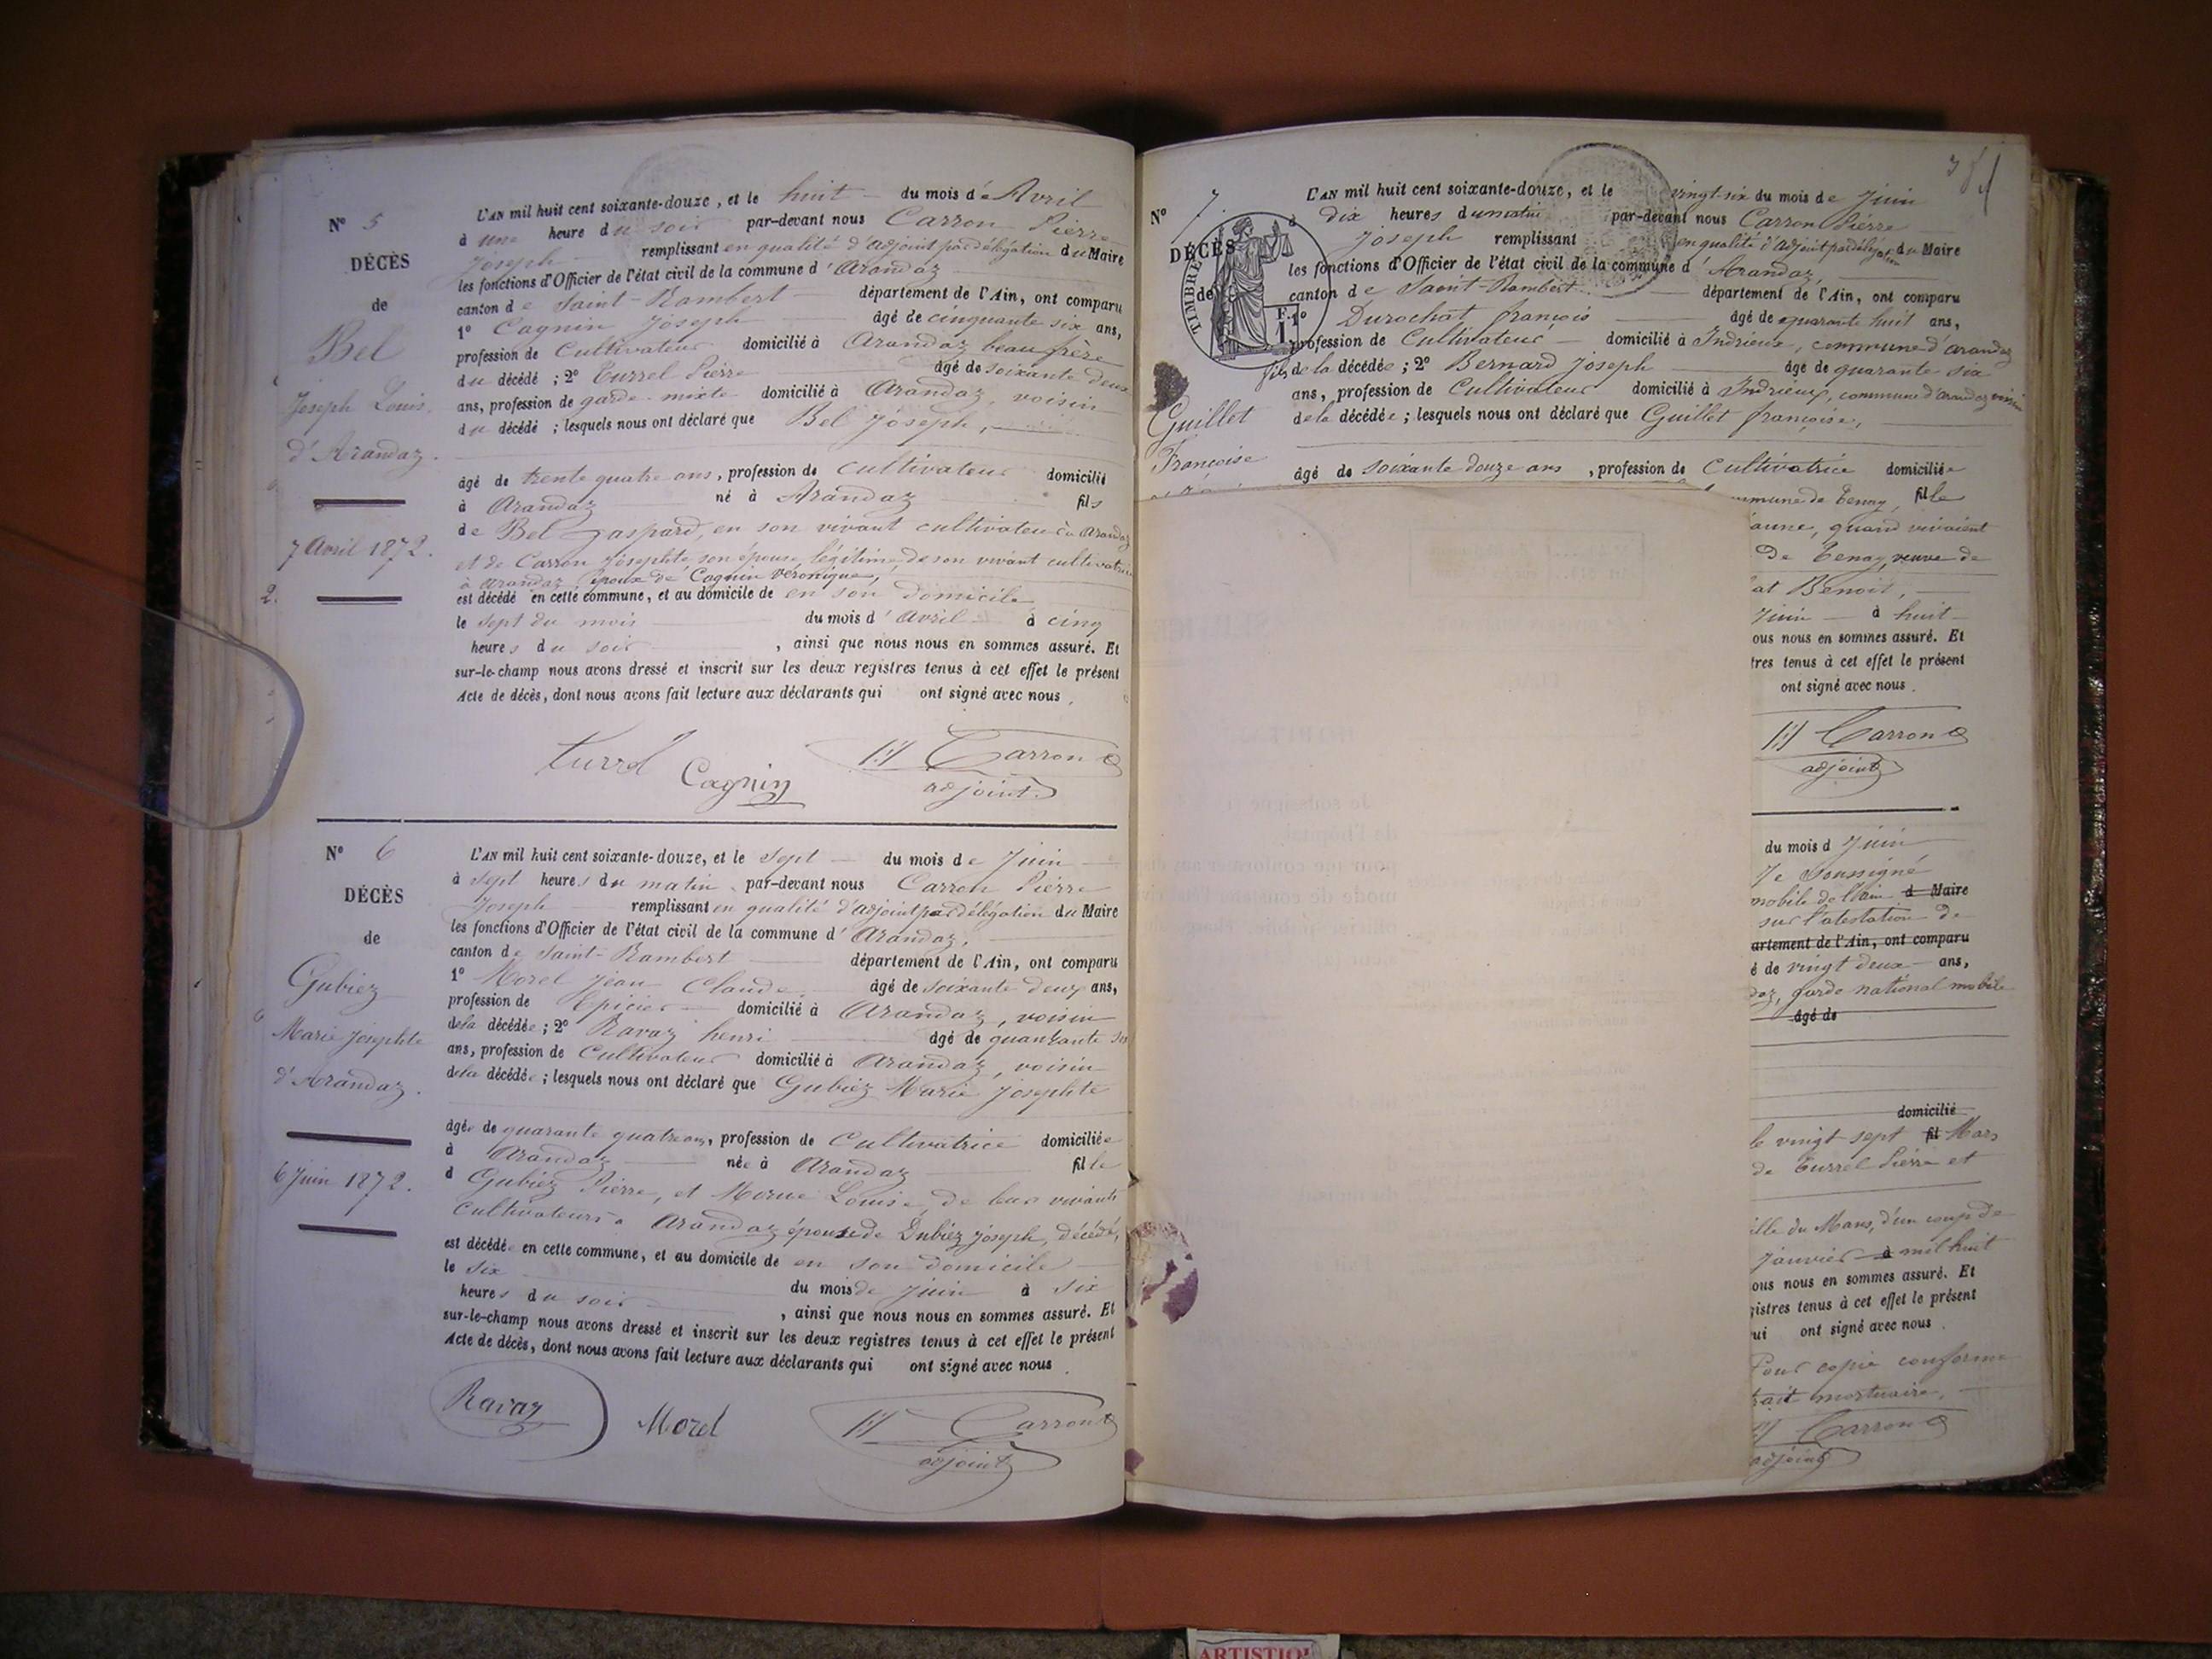 N° 5
DÉCÈS
de
Bel
Joseph Louis
d'Arandaz.
7 Avril 1872.
2.
L'AN mil huit cent soixante-douze, et le huit du mois de Avril
à une heure du soir par-devant nous Carron Pierre
Joseph remplissant en qualité d'adjoint par délégation du Maire
les fonctions d'Officier de l'état civil de la commune d'Arandaz
canton de Saint-Rambert département de l'Ain, ont comparu
1° Cagnin Joseph âgé de cinquante six ans,
profession de Cultivateur domicilié à Arandaz beau frère
du décédé ; 2° Turrel Pierre âgé de soixante deux
ans, profession de garde-mixte domicilié à Arandaz, voisin
du décédé ; lesquels nous ont déclaré que Bel Joseph,
âgé de trente quatre ans, profession de cultivateur domicilié
à Arandaz né à Arandaz fils
de Bel Gaspard, en son vivant cultivateur à Arandaz
et de Carron Josephte, son épouse légitime, de son vivant cultivatrice
à Arandaz, époux de Cagnin Véronique,
est décédé en cette commune, et au domicile de en son domicile
le sept du mois du mois d'Avril à cinq
heures du soir, ainsi que nous nous en sommes assuré. Et
sur-le-champ nous avons dressé et inscrit sur les deux registres tenus à cet effet le présent
Acte de décès, dont nous avons fait lecture aux déclarants qui ont signé avec nous.
Turrel Cagnin Carron
adjoint
N° 6
DÉCÈS
de
Gubiez
Marie Josephte
d'Arandaz.
6 Juin 1872.
L'AN mil huit cent soixante-douze, et le sept du mois de Juin
à sept heures du matin par-devant nous Carron Pierre
Joseph remplissant en qualité d'adjoint par délégation du Maire
les fonctions d'Officier de l'état civil de la commune d'Arandaz,
canton de Saint-Rambert département de l'Ain, ont comparu
1° Morel Jean Claude âgé de soixante deux ans,
profession de Epicier domicilié à Arandaz, voisin
de la décédée ; 2° Ravaz henri âgé de quarante six
ans, profession de Cultivateur domicilié à Arandaz, voisin
de la décédée ; lesquels nous ont déclaré que Gubiez Marie Josephte
âgée de quarante quatre ans, profession de Cultivatrice domiciliée
à Arandaz née à Arandaz fille
d Gubiez Pierre, et Louise, de leur vivants
cultivateurs à Arandaz épouse de Dubiez Joseph, décédé,
est décédée en cette commune, et au domicile de en son domicile
le six du mois de Juin à six
heures du soir, ainsi que nous nous en sommes assuré. Et
sur-le-champ nous avons dressé et inscrit sur les deux registres tenus à cet effet le présent
Acte de décès, dont nous avons fait lecture aux déclarants qui ont signé avec nous.
Ravaz Morel Carron
adjoint
N° 7
DÉCÈS
de
TIMBRE
Guillet
Françoise
L'AN mil huit cent soixante-douze, et le vingt-six du mois de Juin
à dix heures du matin par-devant nous Carron Pierre
Joseph remplissant en qualité d'adjoint par délégation du Maire
les fonctions d'Officier de l'état civil de la commune d'Arandaz,
canton de Saint-Rambert département de l'Ain, ont comparu
1° Durochat françois âgé de quarante huit ans,
profession de Cultivateur domicilié à Indrieux, commune d'arandaz
fils de la décédée ; 2° Bernard Joseph âgé de quarante six
ans, profession de Cultivateur domicilié à Indrieux, commune d'arandaz voisin
de la décédée ; lesquels nous ont déclaré que Guillet françoise,
âgé de soixante douze ans, profession de Cultivatrice domiciliée
mmune de Tenay, fille
aune, quand vivaient
De Tenay, veuve de
at Benoit,
Juin à huit
ous nous en sommes assuré. Et
tres tenus à cet effet le présent
ont signé avec nous.
Carron
adjoint
du mois d Juin
Je soussigné
mobile de l'Ain d Maire
sur l'atestation de
artement de l'Ain, ont comparu
é de vingt deux ans,
daz, garde national mobile
âgé de
domicilié
le vingt sept fil Mars
de Turrel Pierre et
ille du Mans, d'un coup de
Janvier à mil huit
ous nous en sommes assuré. Et
gistres tenus à cet effet le présent
ui ont signé avec nous.
Pour copie conforme
trait mortuaire.
Carron
adjoint
ARTISTIQ